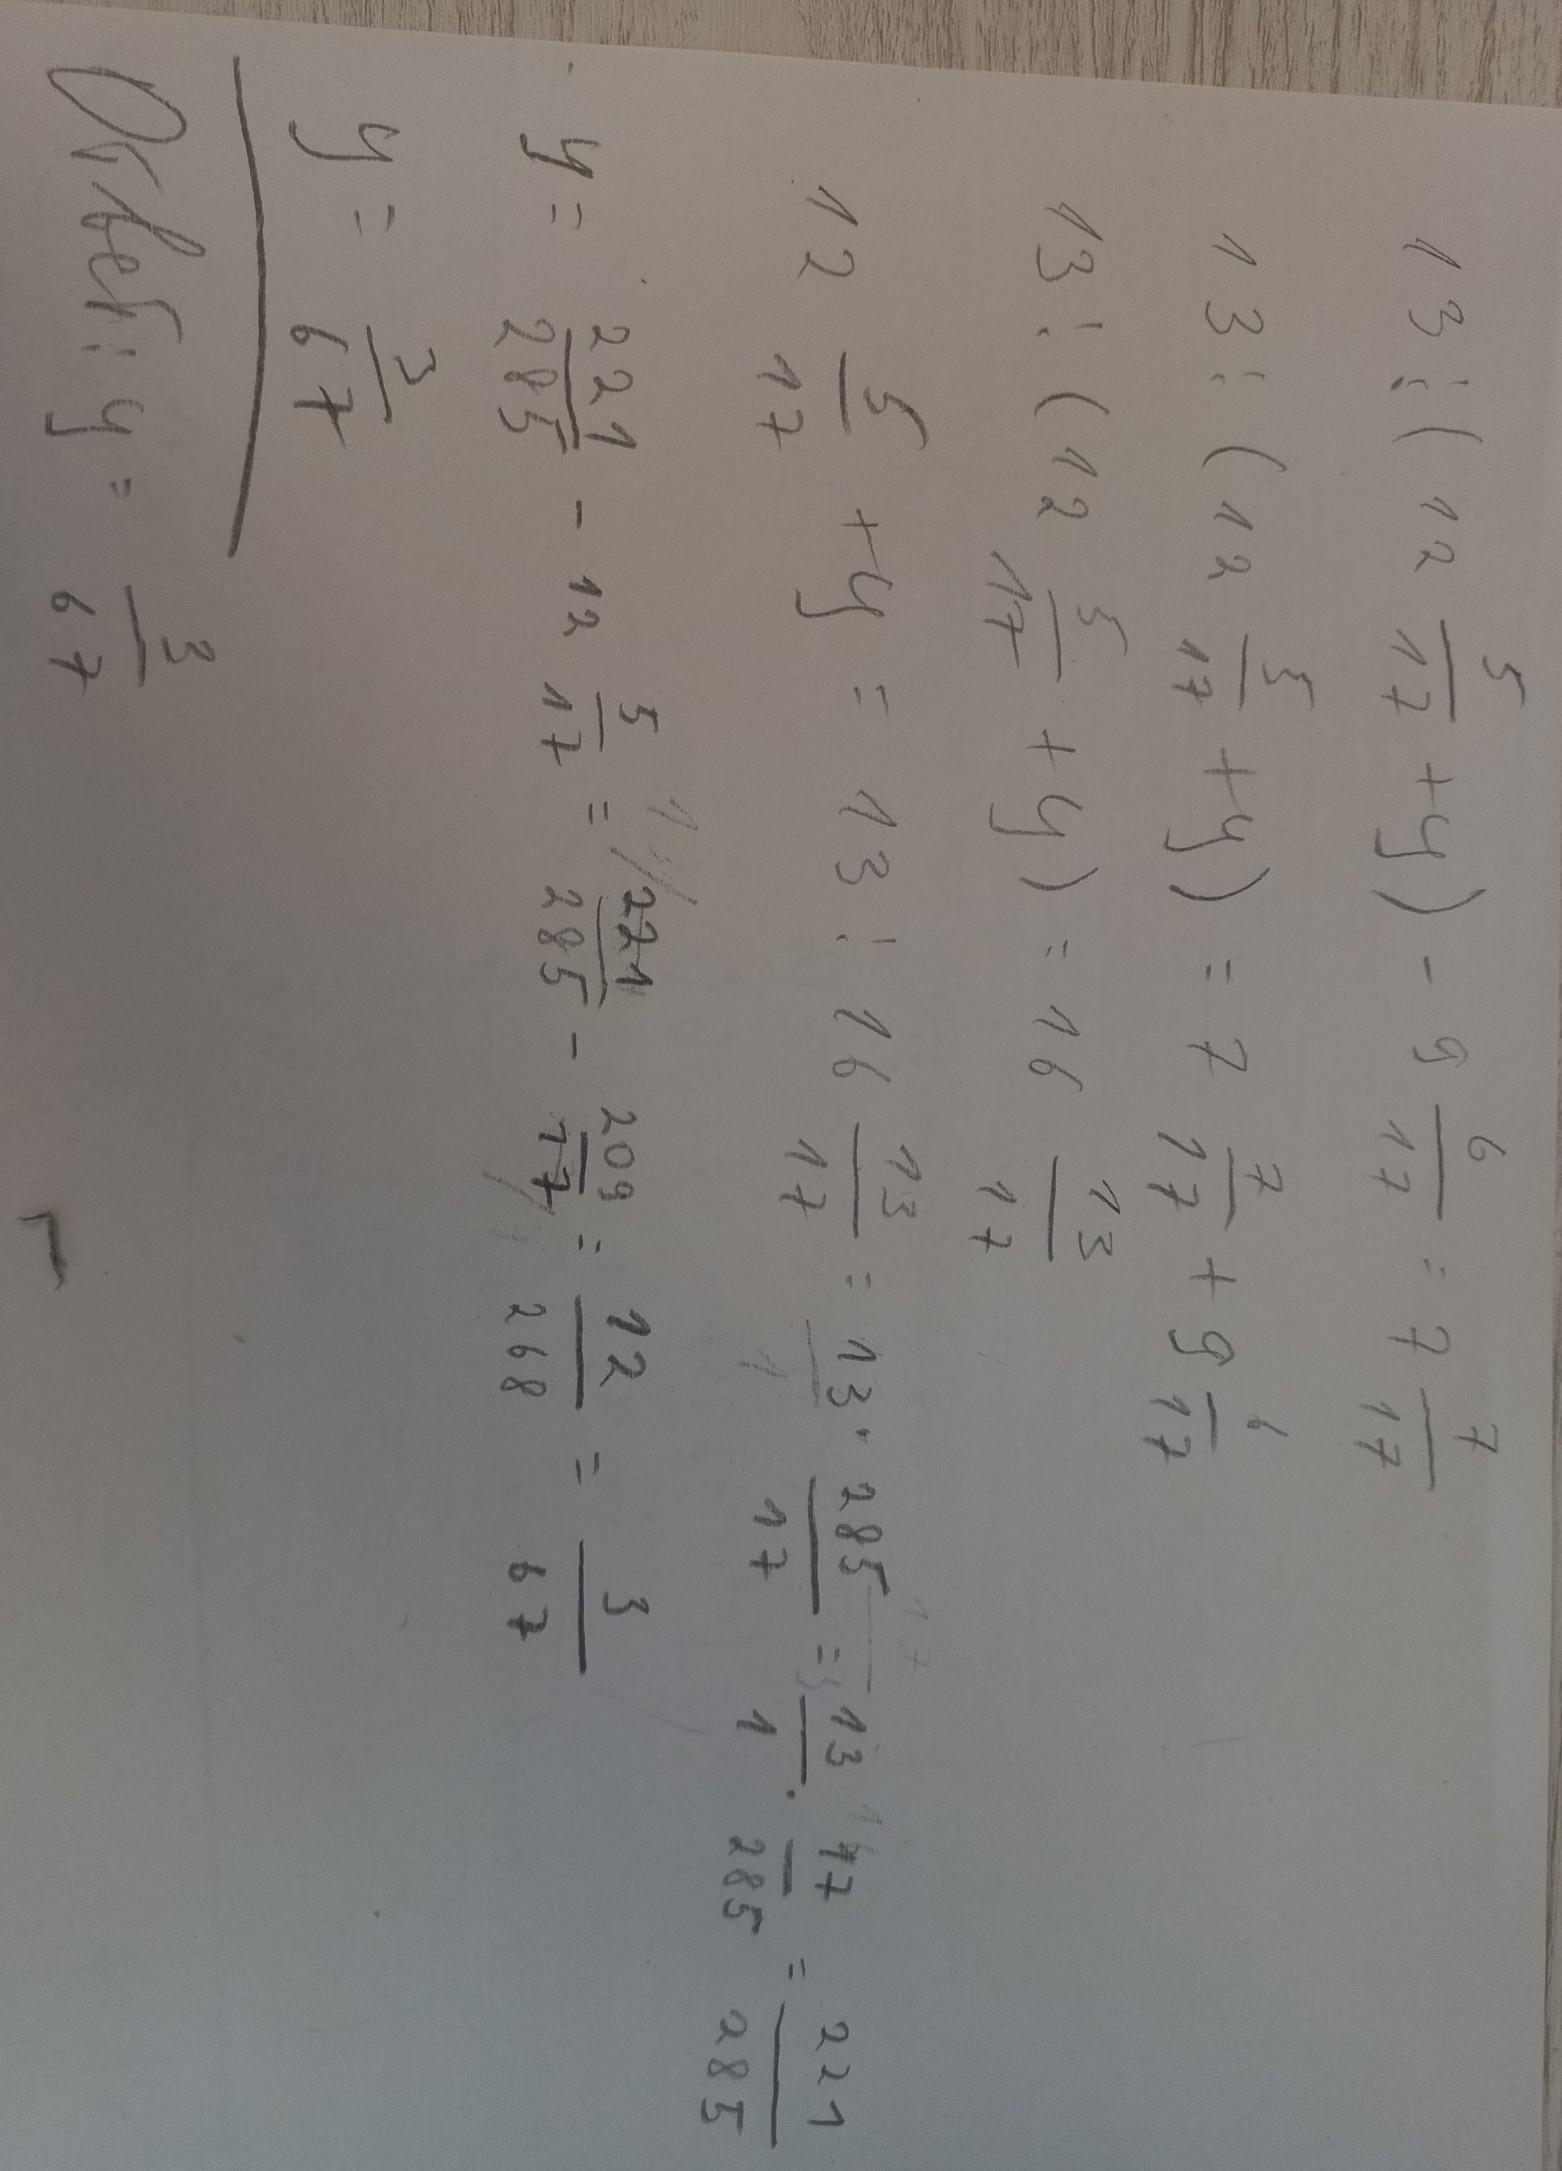 13 : (12 5/17 + y) - 9 6/17 = 7 7/17
13 : (12 5/17 + y) = 7 7/17 + 9 6/17
13 : (12 5/17 + y) = 16 13/17
12 5/17 + y = 13 : 16 13/17 = 13/1 · 285/17 = 13/1 · 17/285 = 221/285
y = 221/285 - 12 5/17 = 221/285 - 209/17 = 12/268 = 3/67
y = 3/67
Ответ: y = 3/67